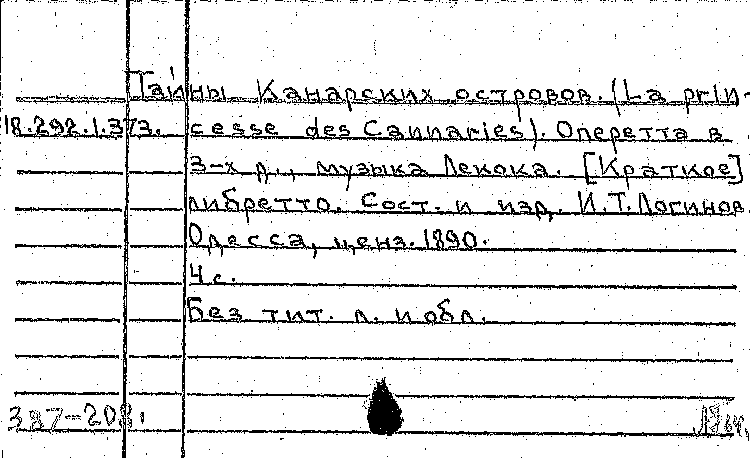 Тайны Канарских островов. (La prin-
18.292.1.373. cesse des Cannaries). Оперетта в
3-х д., музыка Лекока. [Краткое]
либретто. Сост. и изд. И.Т. Логинов.
Одесса, ценз. 1890.
4 с.
Без тит. л. и обл.
387-208.